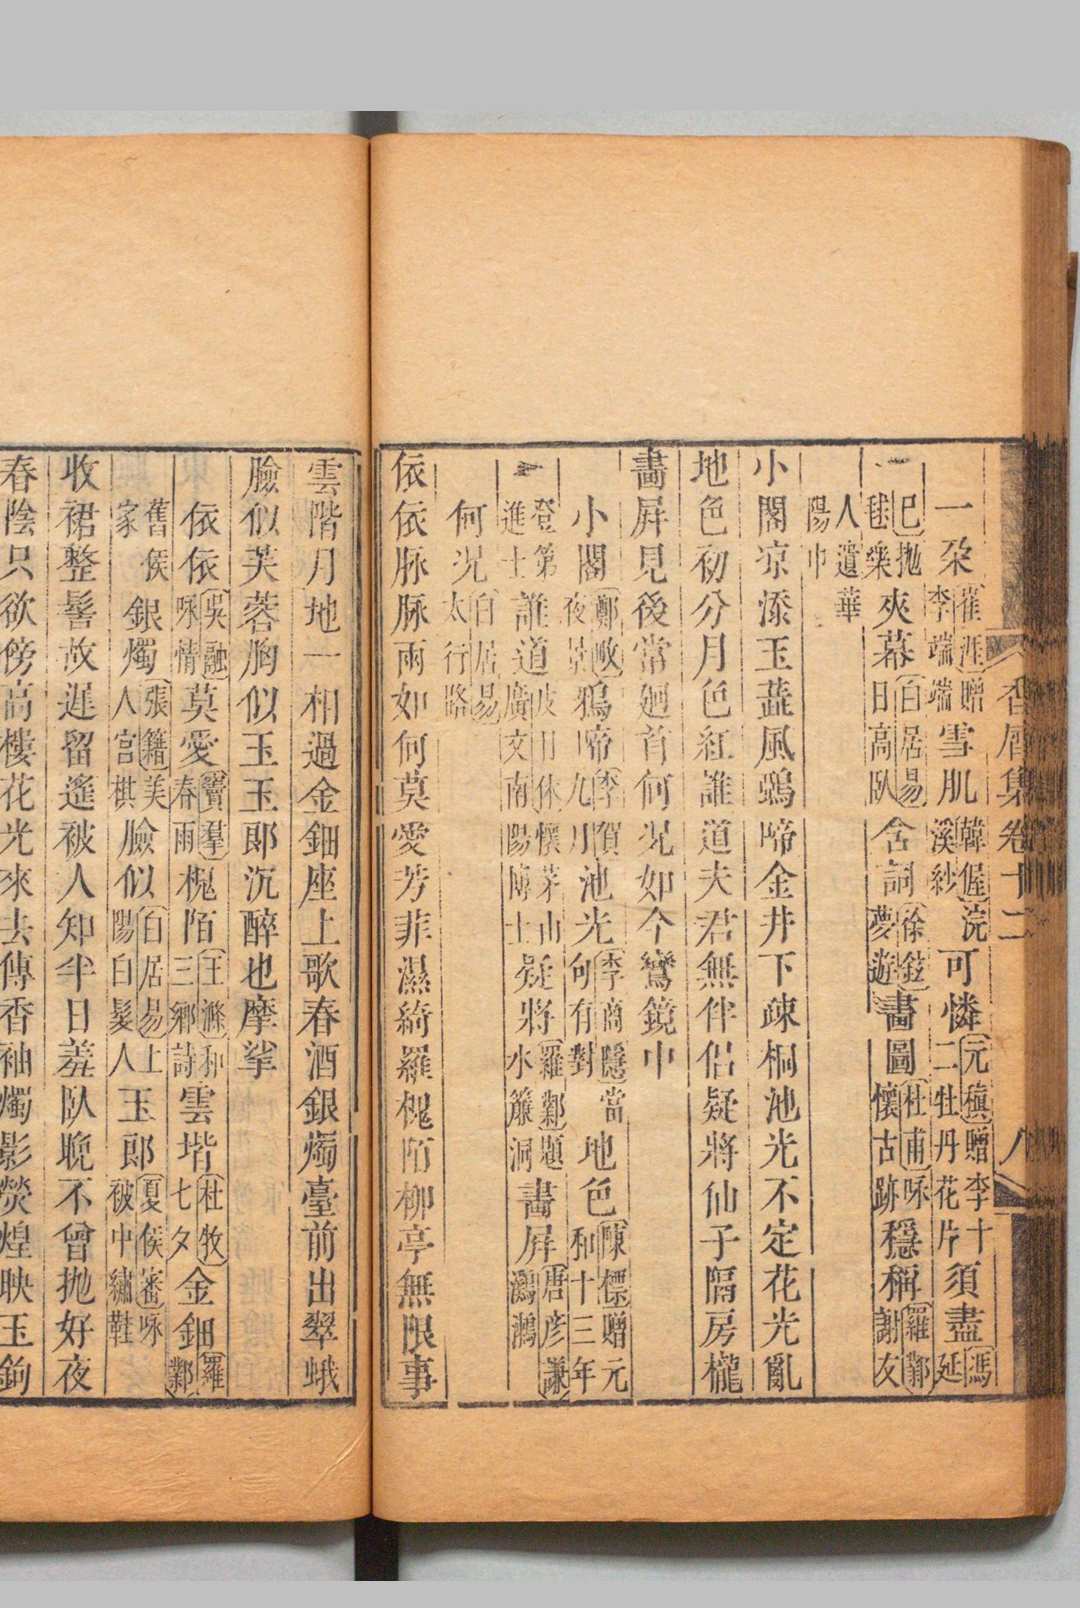 香屑集卷十二
八
一朵崔涯贈李端端雪肌韓偓浣溪紗可憐元稹贈李十二牡丹花片須盡馮延
巳拋毬樂夾幕白居易日高臥含詞徐鉉夢遊畫圖杜甫咏懷古跡穩稱羅鄴謝友
人遺華陽巾
小閣凉添玉蕋風鵶啼金井下疎桐池光不定花光亂
地色初分月色紅誰道夫君無伴侣疑將仙子隔房櫳
畫屏見後常廻首何况如今鸞鏡中
小閣鄭畋夜景鴉啼李賀九月池光李商隱當句有對地色陳標贈元和十三年
登第進士誰道皮日休懷茅山廣文南陽博士疑將羅鄴題水簾洞畫屏唐彦謙鸂鶒
何况白居易太行路
依依脉脉雨如何莫愛芳菲濕綺羅槐陌柳亭無限事
雲階月地一相過金鈿座上歌春酒銀燭臺前出翠蛾
臉似芙蓉胸似玉玉郎沉醉也摩挲
依依吳融咏情莫愛竇鞏春雨槐陌王滌和三鄉詩雲堦杜牧七夕金鈿羅鄴
舊侯家銀燭張籍美人宮棋臉似白居易上陽白髮人玉郎夏侯審咏被中繡鞋
收裙整髻故遲留遙被人知半日羞臥晚不曾拋好夜
春陰只欲傍高樓花光來去傳香袖燭影熒煌映玉鉤